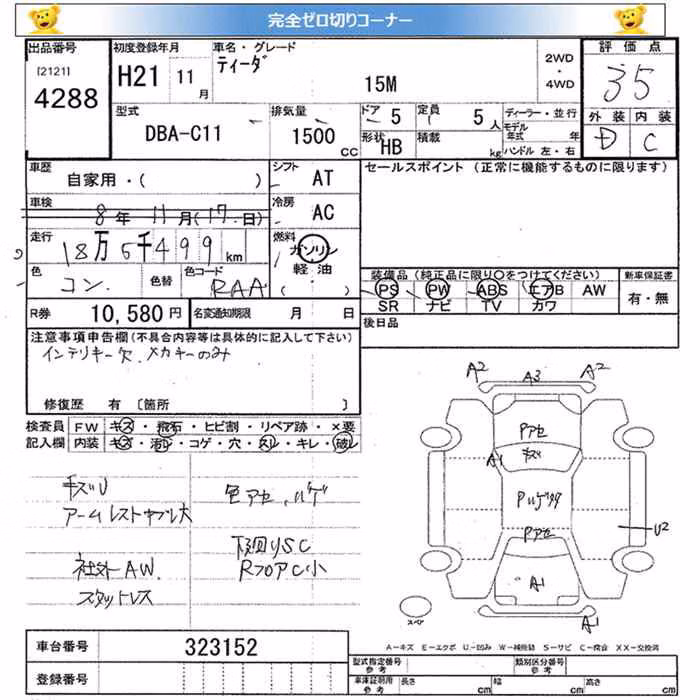 完全ゼロ切りコーナー
出品番号
[2121]
4288
初度登録年月
H21 11月
車名・グレード
ティーダ
15M
2WD
・
4WD
評価点
35
型式
DBA-C11
排気量
1500 cc
ドア 5
定員 5人
形状 HB
積載 kg
ディーラー・並行
モデル年式 年
ハンドル 左・右
外装 内装
D C
車歴
自家用・( )
シフト AT
車検
8年 11月(17日)
冷房 AC
走行
18万5千499km
燃料
ガソリン
軽油
( )
色
コン
色替
色コード
RAA
セールスポイント (正常に機能するものに限ります)
装備品 (純正品に限り○をつけてください)
PS PW ABS エアB AW
SR ナビ TV カワ
新車保証書
有・無
R券 10,580円
名変通知期限 月 日
後日品
注意事項申告欄(不具合内容等は具体的に記入して下さい)
インテリキー欠、メカキーのみ
修復歴 有 〔箇所 〕
検査員記入欄
FW キズ・飛石・ヒビ割・リペア跡・×要
内装 キズ・汚レ・コゲ・穴・スレ・キレ・破レ
キズU
アームレストヤブレ大
色アセ、ハゲ
下回りSC
社外AW
RフロアC小
スタットレス
A2 A3 A2
Pアセ
キズ
A1
Pハゲ
Pアセ
U2
A1
A1
スペア
A-キズ E-エクボ U-凹み W-補修跡 S-サビ C-腐食 XX-交換済
車台番号 323152
登録番号
型式指定番号 参考
類別区分番号 参考
車庫証明用 参考 長さ cm 幅 cm 高さ cm